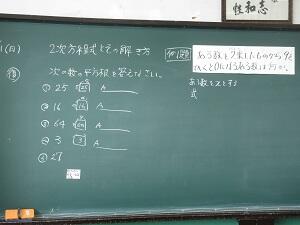 性和志
2次方程式とその解き方
例題
ある数を2乗したものから9を
ひくと0になるある数は何か。
復
次の数の平方根を答えなさい。
① 25 A
② 16 A
③ 64 A
④ 3 A
⑤ 27
ある数をxとする
式